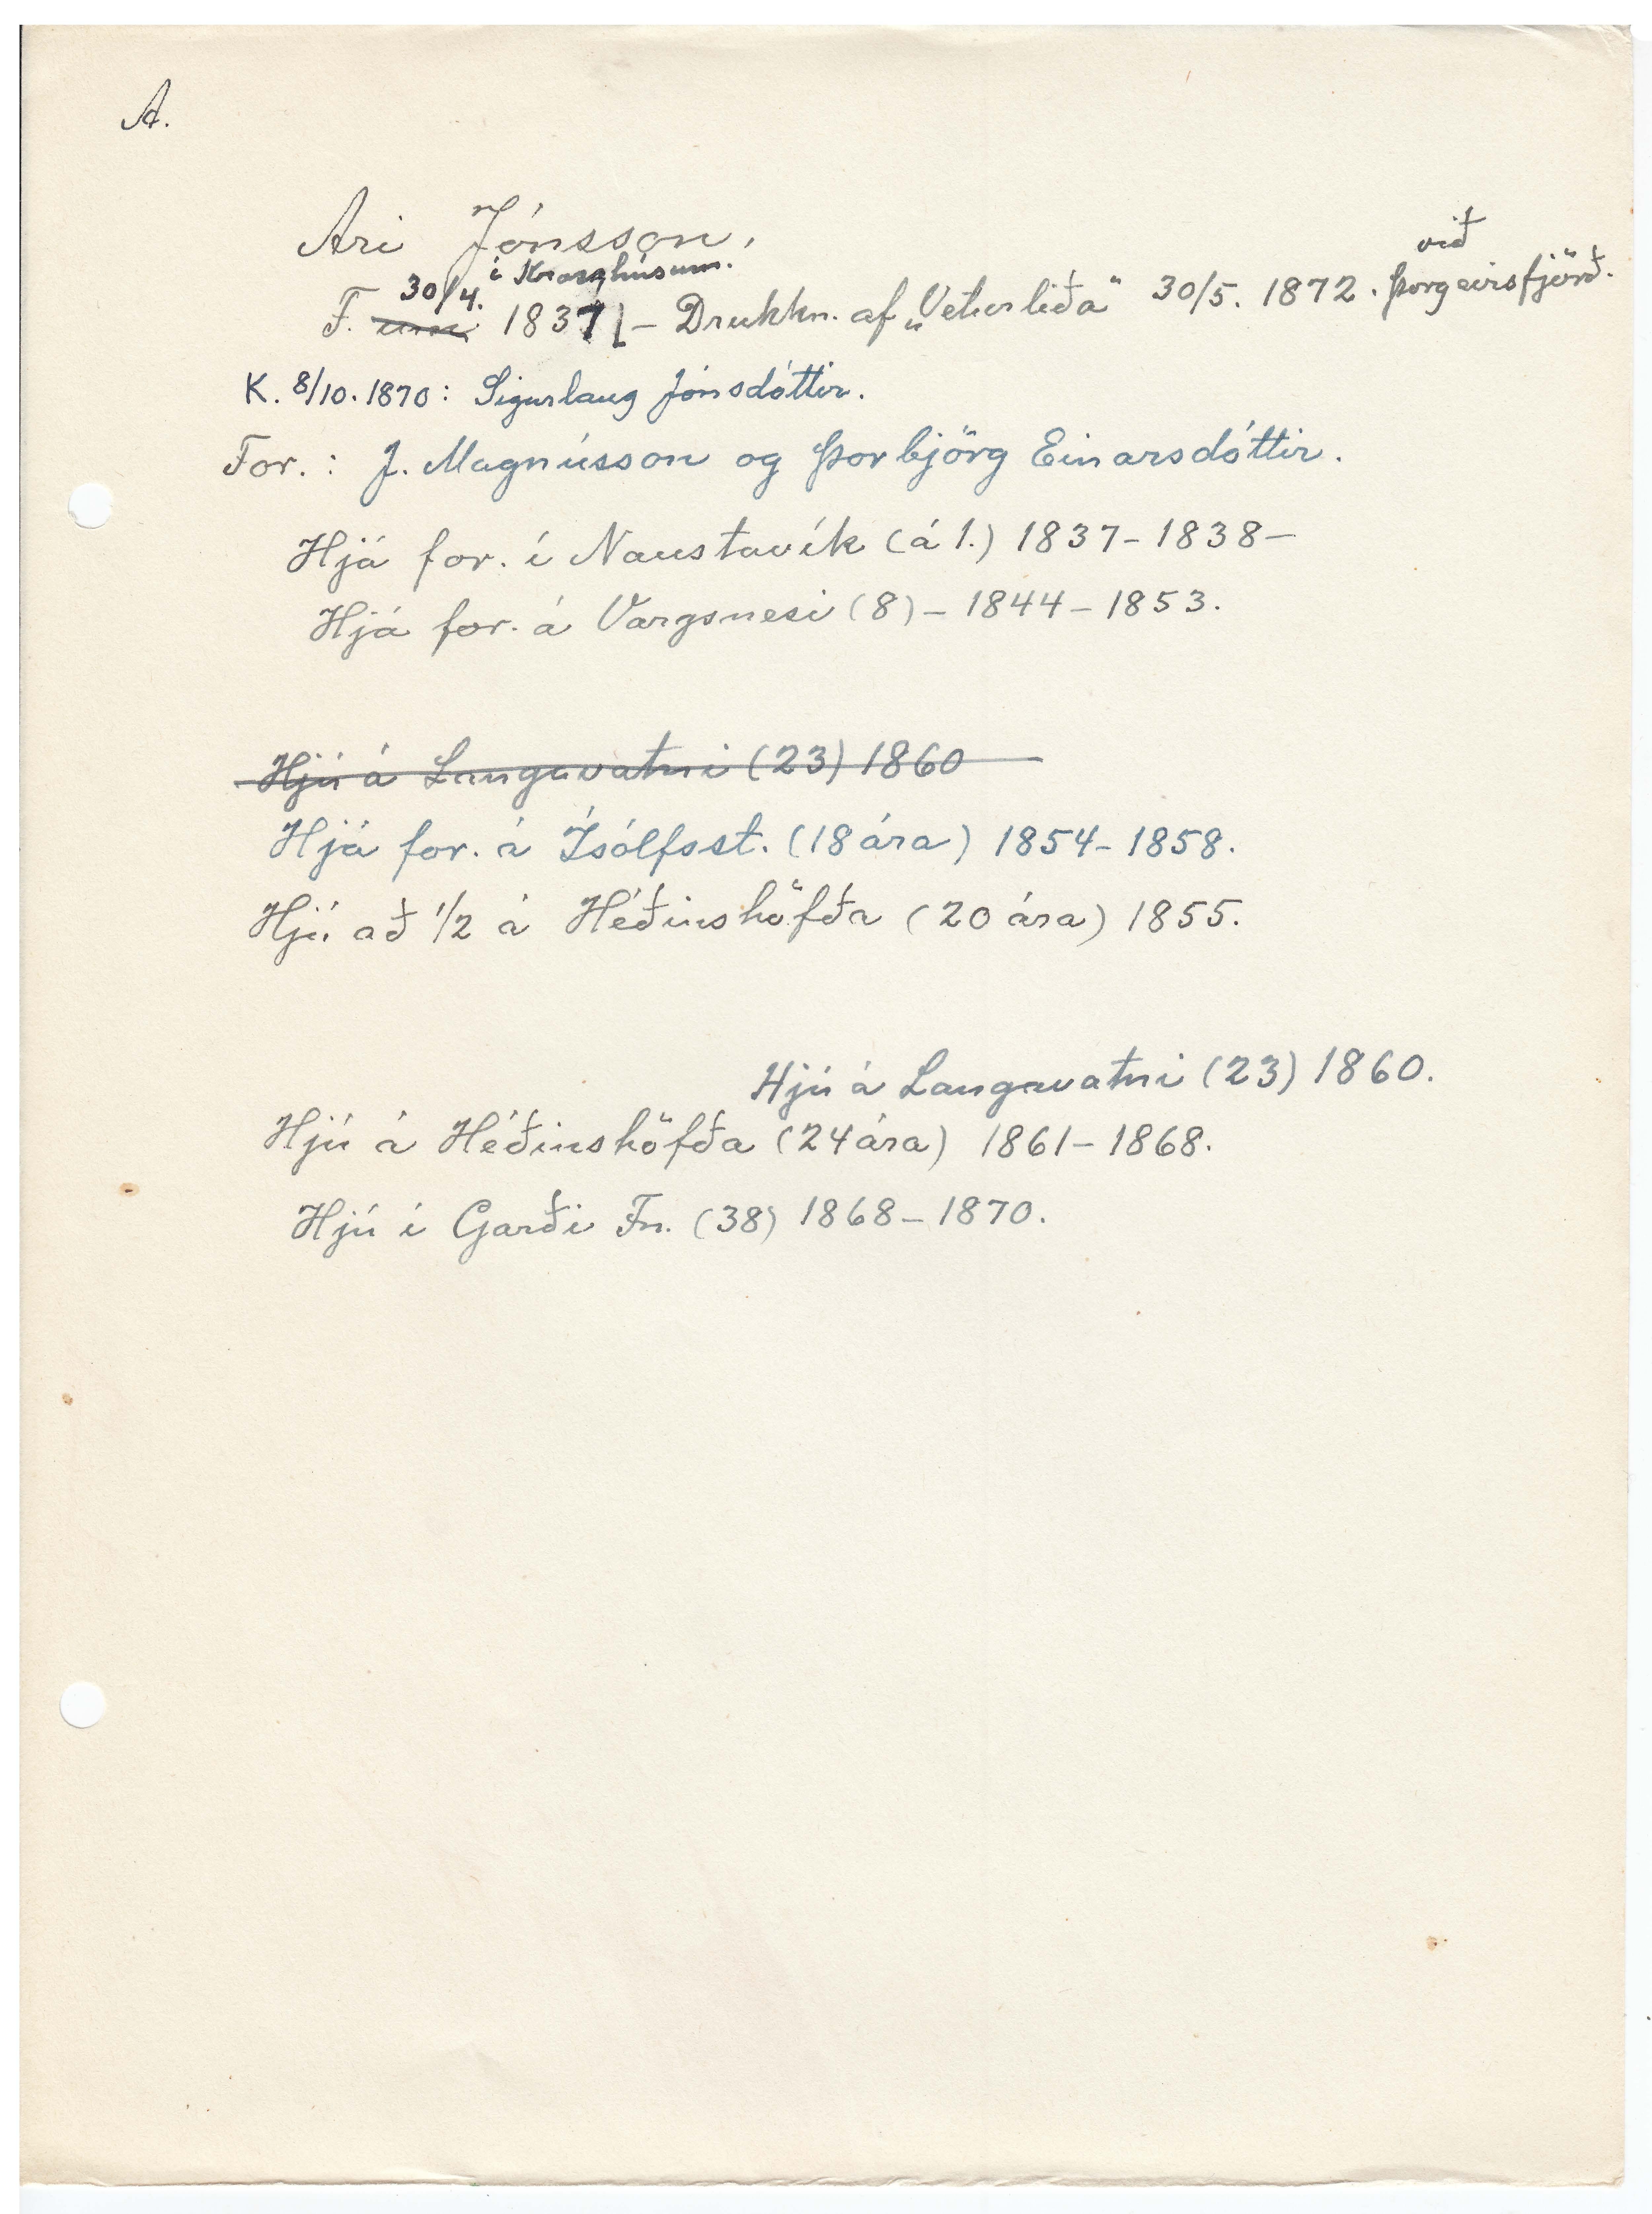 A.
Ari Jónsson,
30/4. í Krosshúsum.
F. 1837 – Drukkn. af „Veturliða“ 30/5. 1872. við Þorgeirsfjörð.
K. 8/10. 1870: Sigurlaug Jónsdóttir.
For.: J. Magnússon og Þorbjörg Einarsdóttir.
Hjá for. í Naustavík (á 1.) 1837–1838–
Hjá for. á Vargsnesi (8) – 1844–1853.
Hjú á Langavatni (23) 1860
Hjá for. á Ísólfsst. (18 ára) 1854–1858.
Hjú að 1/2 á Héðinshöfða (20 ára) 1855.
Hjú á Langavatni (23) 1860.
Hjú á Héðinshöfða (24 ára) 1861–1868.
Hjú í Garði Fn. (38) 1868–1870.